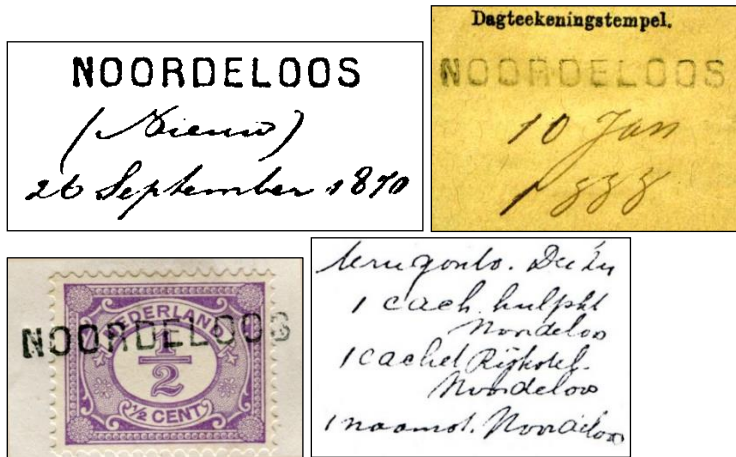 NOORDELOOS
(Nieuw)
26 September 1870
Dagteekeningstempel.
NOORDELOOS
10 Jan
1888
NEDERLAND
1/2
NOORDELOOS
1/2 CENT
1 cach. hulpkt
Noordeloos
1 cachet Rijkstel.
Noordeloos
1 naamst. Noordeloos